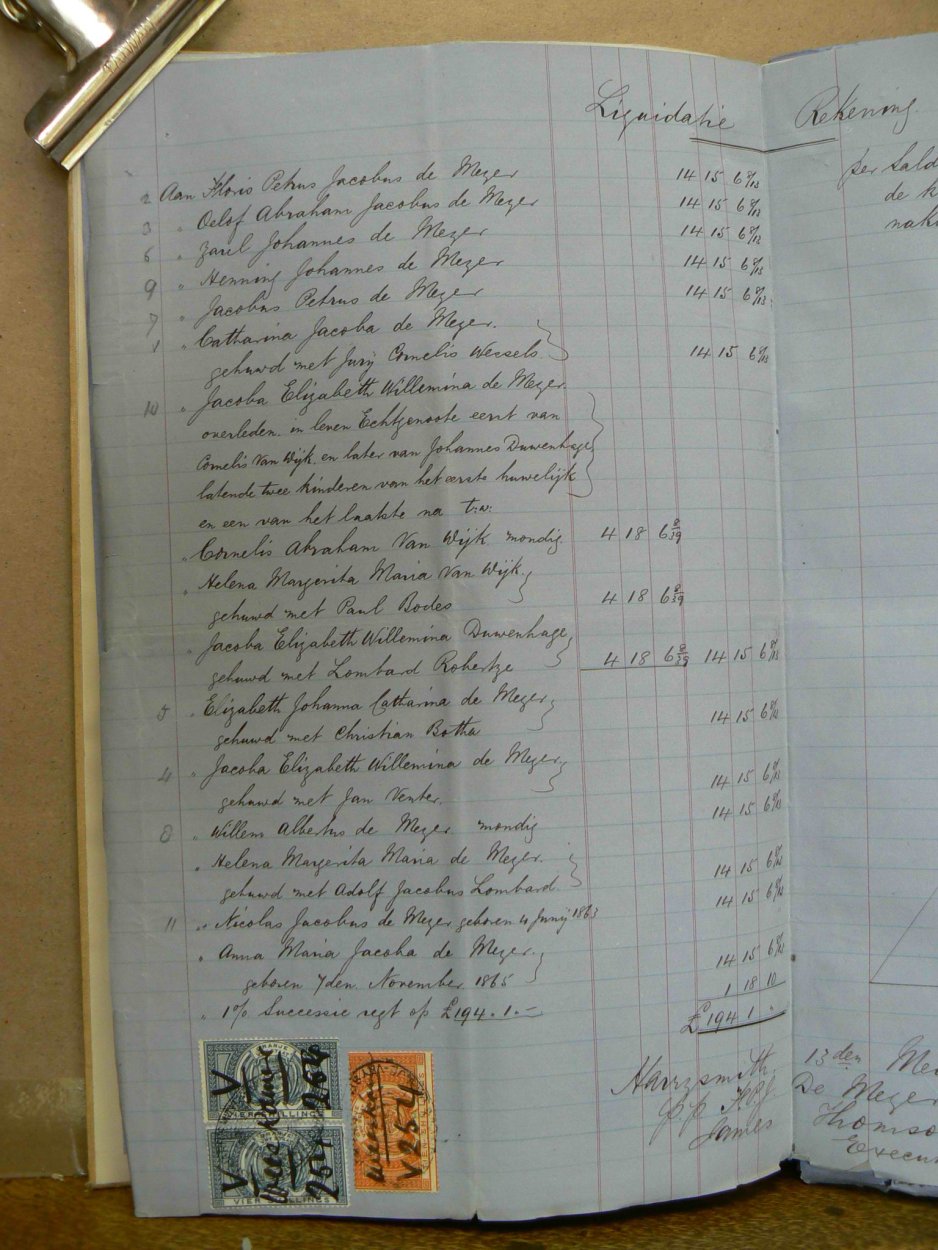 TAIWAN
Liquidatie Rekening.
2 Aan Floris Petrus Jacobus de Meyer 14 15 6 9/13
3 " Oelof Abraham Jacobus de Meyer 14 15 6 9/13
6 " Zarel Johannes de Meyer 14 15 6 9/13
9 " Henning Johannes de Meyer 14 15 6 9/13
7 " Jacobus Petrus de Meyer 14 15 6 9/13
1 " Catharina Jacoba de Meyer.
gehuwd met Jurij Cornelis Wessels. 14 15 6 9/13
10 " Jacoba Elizabeth Willemina de Meyer.
overleden. in leven Echtgenoote eerst van
Cornelis Van Wijk. en later van Johannes Duwenhage
latende twee kinderen van het eerste huwelijk
en een van het laatste na t:w:
" Cornelis Abraham Van Wijk mondig 4 18 6 9/39
" Helena Margerita Maria Van Wijk.
gehuwd met Paul Bodes 4 18 6 9/39
" Jacoba Elizabeth Willemina Duwenhage
gehuwd met Lombard Robertze 4 18 6 9/39 14 15 6 9/13
5 " Elizabeth Johanna Catharina de Meyer
gehuwd met Christian Botha 14 15 6 9/13
4 " Jacoba Elizabeth Willemina de Meyer
gehuwd met Jan Venter. 14 15 6 9/13
8 " Willem Albertus de Meyer mondig 14 15 6 9/13
" Helena Margerita Maria de Meyer.
gehuwd met Adolf Jacobus Lombard 14 15 6 9/13
11 " Nicolas Jacobus de Meyer geboren 4 Junij 1863 14 15 6 9/13
" Anna Maria Jacoba de Meyer.
geboren 7den. November 1865 14 15 6 9/13
" 1% Successie regt op £194.1.- 1 18 10
£194 1 "
per Sald
de k
nak
Harrysmith. 13den Mei
p.p. De Meyer
James Thomso
Execu
ORANJE
VIER SHILLINGS
VIER SHILLINGS